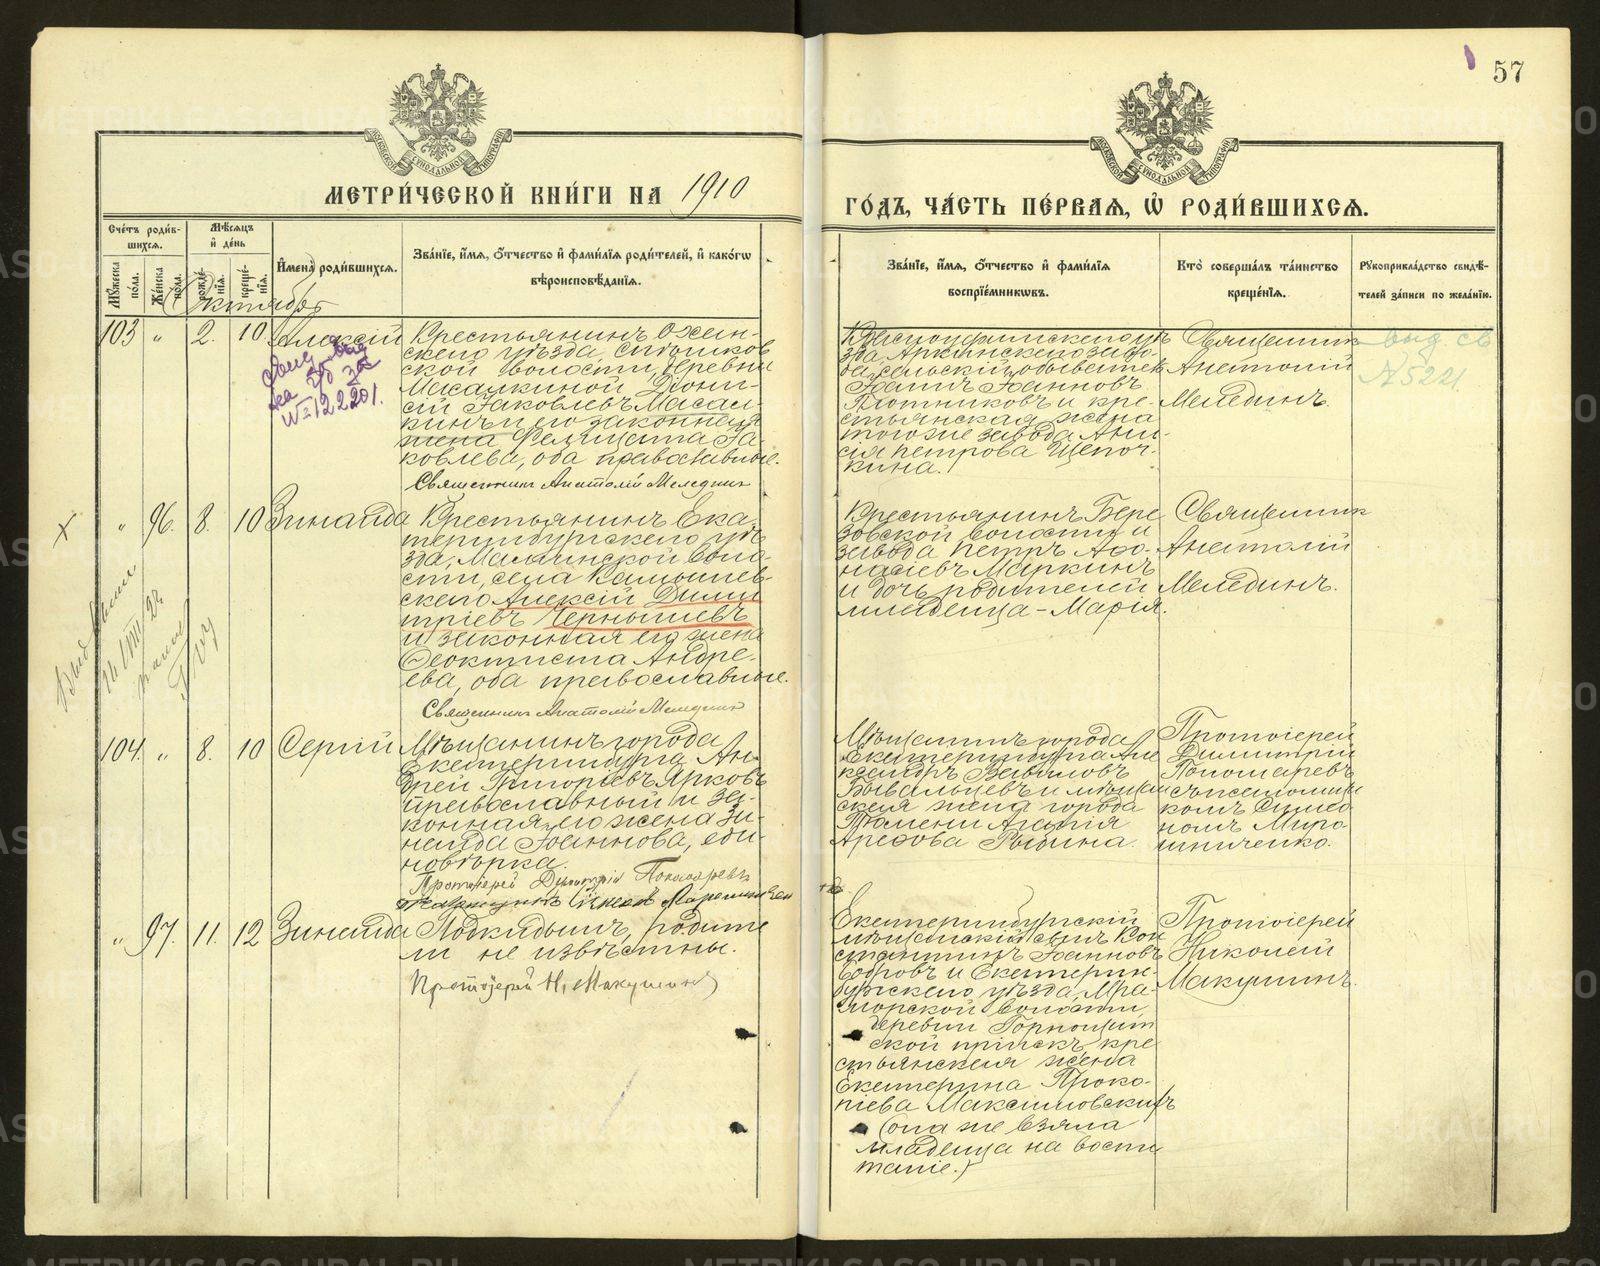 57
МЕТРИ́ЧЕСКОЙ КНИ́ГИ НА 1910
ГО́ДЪ, ЧА́СТЬ ПЕ́РВАЯ, Ѽ РОДИ́ВШИХСЯ.
Сче́тъ роди́в-
шихся.
Мѣ́сяцъ
и де́нь
Мꙋ́жеска
по́ла.
Же́нска
по́ла.
рожде́-
нїя.
креще́-
нїя.
И҆мена̀ роди́вшихся.
Зва́нїе, и҆́мя, ѻ҆́тчество и҆ фами́лїя роди́телей, и҆ како́гѡ
вѣроисповѣ́данїя.
Зва́нїе, и҆́мя, ѻ҆́тчество и҆ фами́лїя
воспрїе́мникѡвъ.
Кто̀ соверша́лъ та́инство
креще́нїя.
Рꙋкоприкла́дство свидѣ́-
телей за́писи по жела́нїю.
Октябрь
103 " 2. 10. Алексій
Крестьянинъ Охан-
скаго уѣзда,
ской волости, деревни
Масалкиной Діони-
сій Іаковлевъ Масал-
кинъ и его законная
жена Фелицата Іа-
ковлева, оба православные.
Священникъ Анатолій Мелединъ
Красноуфимскаго уѣ-
зда, Артинскаго заво-
да сельскій обыватель
Іоаннъ Іоанновъ
Плотниковъ и кре-
стьянская жена
того же завода Ани-
сія Петрова Щепоч-
кина.
Священникъ
Анатолій
Мелединъ.
выд. св
№ 5221.
" 96. 8. 10 Зинаида
Крестьянинъ Ека-
теринбургскаго уѣ-
зда, Маминской воло-
сти, села Камышев-
скаго Алексій Дими
тріевъ Чернышевъ
и законная его жена
Ѳеоктиста Андре-
ева, оба православные.
Священникъ Анатолій Мелединъ
Крестьянинъ Бере
зовской волости и
завода Петръ Аѳа-
насіевъ Маркинъ
и дочь родителей
младенца - Марія.
Священникъ
Анатолій
Мелединъ.
104. " 8. 10 Сергій
Мѣщанинъ города
Екатеринбурга Ан-
дрей Григоріевъ Ярковъ
православный и за-
конная его жена Зи-
наида Іоаннова, еди-
новѣрка.
Протоіерей Димитрій Пономаревъ
Мѣщанинъ города
Екатеринбурга Але
ксандръ Вавиловъ
Бывальцевъ и мѣщан
ская жена города
Тюмени Агапія
Арефова Рыбина.
Протоіерей
Димитрій
Пономаревъ
съ псаломщи
комъ Симео
номъ Миро-
шниченко.
" 97. 11. 12 Зинаида
Подкидышъ, родите
ли не извѣстны.
Протоіерей Н. Макушинъ
Екатеринбургскій
мѣщанскій сынъ Кон
стантинъ Іоанновъ
Бобровъ и Екатерин-
бургскаго уѣзда, Мра-
морской волости,
деревни Горнощит
ской пріискъ кре
стьянская жена
Екатерина Проко-
піева Максимовскихъ
(она же взяла
младенца на воспи
таніе.)
Протоіерей
Николай
Макушинъ.